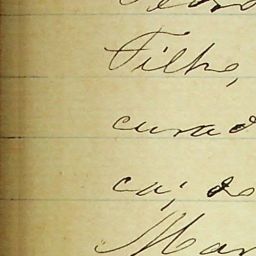 Filho,
curad
ca; de
Mar